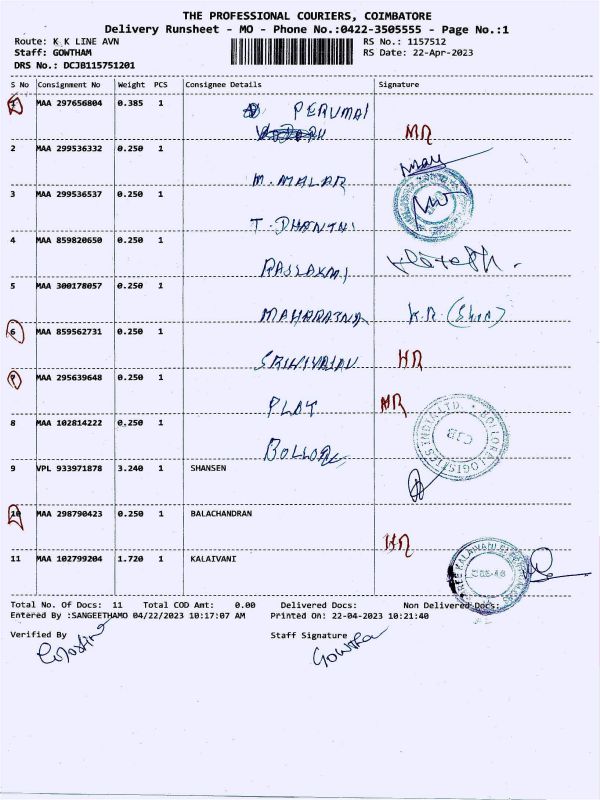 THE PROFESSIONAL COURIERS, COIMBATORE
Delivery Runsheet - MO - Phone No.:0422-3505555 - Page No.:1
Route: K K LINE AVN RS No.: 1157512
Staff: GOWTHAM RS Date: 22-Apr-2023
DRS No.: DCJB115751201
S No Consignment No Weight PCS Consignee Details Signature
1 MAA 297656804 0.385 1 PERUMAL MR
2 MAA 299536332 0.250 1 M. MALAR
3 MAA 299536537 0.250 1 T. DHANTHI
4 MAA 859820650 0.250 1 RAJLAXMI
5 MAA 300178057 0.250 1 MAHARATNA K.R
6 MAA 859562731 0.250 1 SRINIVASAN HR
7 MAA 295639648 0.250 1 PLAT MR
8 MAA 102814222 0.250 1 BOLLORE BOLLORE LOGISTICS INDIA LTD. CJB
9 VPL 933971878 3.240 1 SHANSEN
10 MAA 298790423 0.250 1 BALACHANDRAN HR
11 MAA 102799204 1.720 1 KALAIVANI
Total No. Of Docs: 11 Total COD Amt: 0.00 Delivered Docs: Non Delivered Docs:
Entered By :SANGEETHAMO 04/22/2023 10:17:07 AM Printed On: 22-04-2023 10:21:40
Verified By Staff Signature
Gowtham